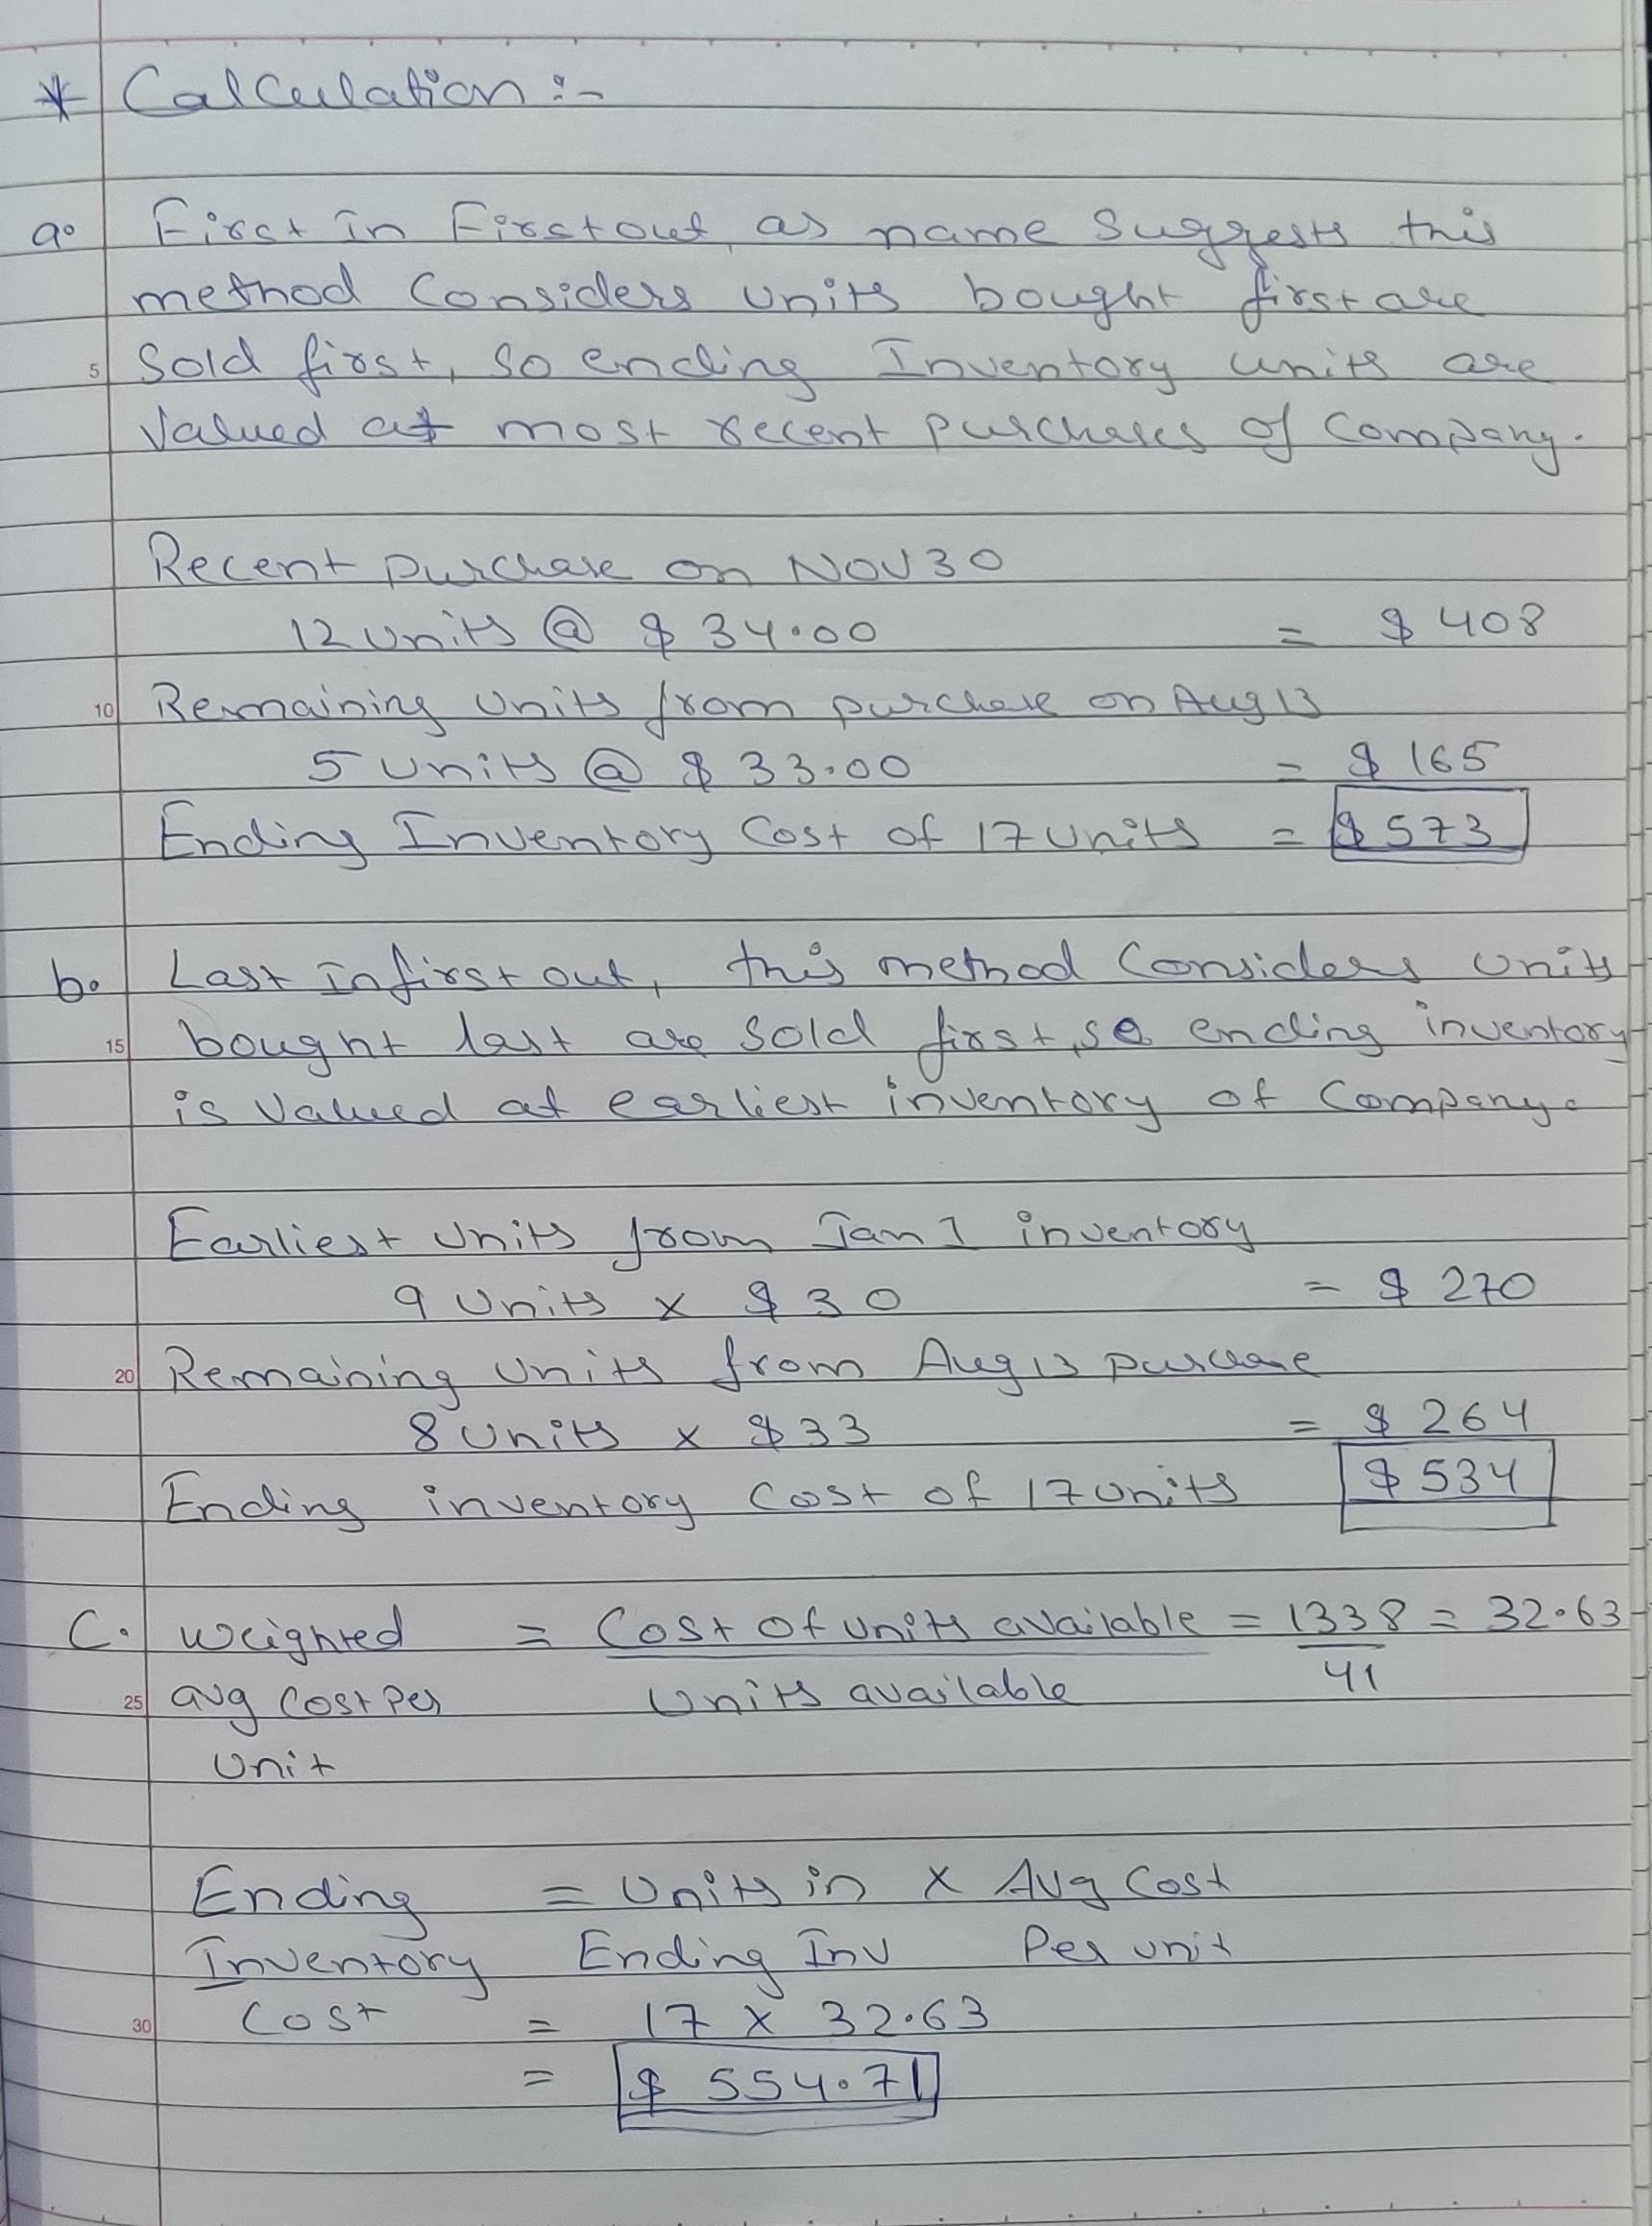 * Calculation :-
a. First in First out, as name suggests this
method Considers units bought first are
5 Sold first, so ending Inventory units are
Valued at most recent purchases of Company.
Recent purchase on Nov 30
12 units @ $ 34.00 = $ 408
10 Remaining units from purchase on Aug 13
5 units @ $ 33.00 = $ 165
Ending Inventory Cost of 17 units = $ 573
b. Last in first out, this method Considers units
15 bought last are sold first, so ending inventory
is Valued at earliest inventory of Company.
Earliest units from Jan 1 inventory
9 units x $ 30 = $ 270
20 Remaining units from Aug 13 purchase
8 units x $ 33 = $ 264
Ending inventory Cost of 17 units $ 534
C. weighted = Cost of units available = 1338 = 32.63
25 avg Cost Per Units available 41
Unit
Ending = Units in x Avg Cost
Inventory Ending Inv Per unit
30 Cost = 17 x 32.63
= $ 554.71